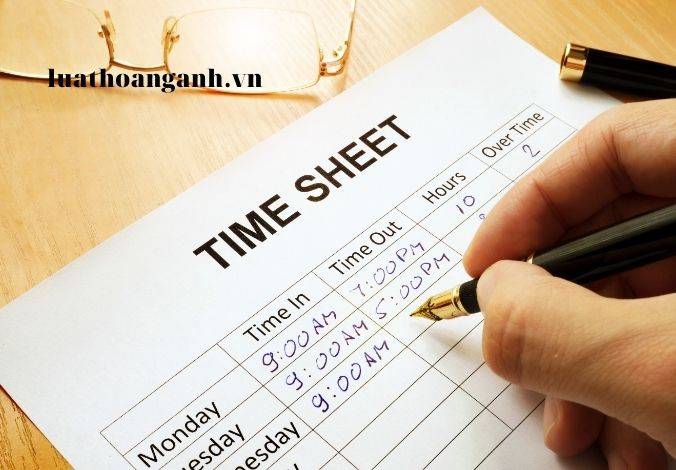 luathoanganh.vn
TIME SHEET
Time In Time Out Hours Over Time
Monday 9:00 AM 7:00 PM 10 2
9:00 AM 5:00 PM
9:00 AM